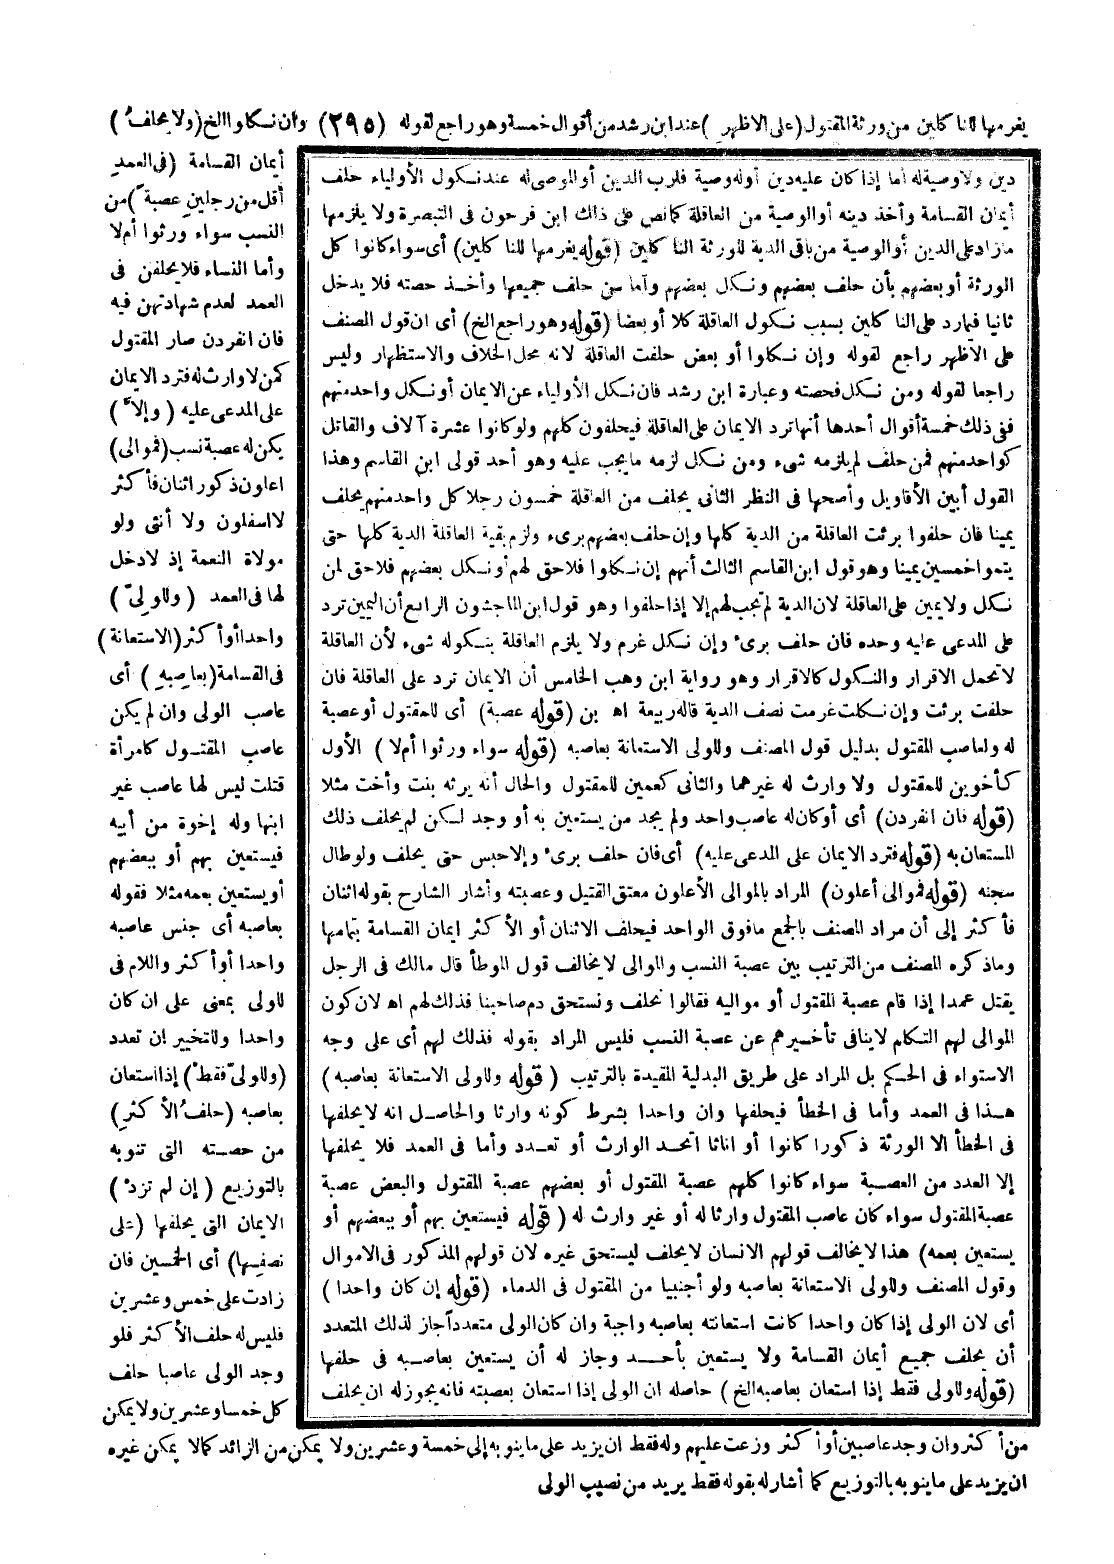 يغرمها لنا كلين من ورثة المقتول (على الاظهر) عند ابن رشد من أقوال خمسة وهو راجع لقوله (٢٩٥) وان نكلوا الخ (ولا يحلف)
أيمان القسامة (فى العمد
أقل من رجلين عصبة) من
النسب سواء ورثوا أم لا
وأما النساء فلا يحلفن فى
العمد لعدم شهادتهن فيه
فان انفردن صار المقتول
كمن لا وارث له فترد الايمان
على المدعى عليه (وإلا)
يكن له عصبة نسب (فموالى)
اعلون ذكور اثنان فأكثر
لا اسفلون ولا أنثى ولو
مولاة النعمة إذ لا دخل
لها فى العمد (وللولى)
واحدا أو أكثر (الاستعانة)
فى القسامة (بعاصبه) أى
عاصب الولى وان لم يكن
عاصب المقتول كامرأة
قتلت ليس لها عاصب غير
ابنها وله إخوة من أبيه
فيستعين بهم أو ببعضهم
أو يستعين بعمه مثلا فقوله
بعاصبه أى جنس عاصبه
واحدا أو أكثر واللام فى
للولى بمعنى على ان كان
واحدا وللتخيير ان تعدد
(وللولى فقط) إذا استعان
بعاصبه (حلف الأكثر)
من حصته التى تنوبه
بالتوزيع (إن لم تزد)
الايمان التى يحلفها (على
نصفها) أى الخمسين فان
زادت على خمس وعشرين
فليس له حلف الأكثر فلو
وجد الولى عاصبا حلف
كل خمسا وعشرين ولا يمكن
من أكثر وان وجد عاصبين أو أكثر وزعت عليهم وله فقط ان يزيد على ما ينوبه إلى خمسة وعشرين ولا يمكن من الزائد كما لا يمكن غيره
ان يزيد على ما ينوبه بالتوزيع كما أشار له بقوله فقط يريد من نصيب الولى
دين ولا وصية له أما إذا كان عليه دين أوله وصية فلرب الدين أو الموصى له عند نكول الأولياء حلف
أيمان القسامة وأخذ دينه أو الوصية من العاقلة كما نص على ذلك ابن فرحون فى التبصرة ولا يلزمها
ما زاد على الدين أو الوصية من باقى الدية للورثة الناكلين (قوله يغرمها للناكلين) أى سواء كانوا كل
الورثة أو بعضهم بأن حلف بعضهم ونكل بعضهم وأما من حلف جميعها وأخذ حصته فلا يدخل
ثانيا فيما رد على الناكلين بسبب نكول العاقلة كلا أو بعضا (قوله وهو راجع الخ) أى ان قول المصنف
على الاظهر راجع لقوله وإن نكلوا أو بعض حلفت العاقلة لانه محل الخلاف والاستظهار وليس
راجعا لقوله ومن نكل فحصته وعبارة ابن رشد فان نكل الأولياء عن الايمان أو نكل واحد منهم
ففى ذلك خمسة أقوال أحدها أنها ترد الايمان على العاقلة فيحلفون كلهم ولو كانوا عشرة آلاف والقاتل
كواحد منهم فمن حلف لم يلزمه شىء ومن نكل لزمه ما يجب عليه وهو أحد قولى ابن القاسم وهذا
القول أبين الأقاويل وأصحها فى النظر الثانى يحلف من العاقلة خمسون رجلا كل واحد منهم يحلف
يمينا فان حلفوا برئت العاقلة من الدية كلها وإن حلف بعضهم برىء ولزم بقية العاقلة الدية كلها حتى
يتموا خمسين يمينا وهو قول ابن القاسم الثالث أنهم إن نكلوا فلا حق لهم أو نكل بعضهم فلا حق لمن
نكل ولا يمين على العاقلة لان الدية لم تجب لهم إلا إذا حلفوا وهو قول ابن الماجشون الرابع أن اليمين ترد
على المدعى عليه وحده فان حلف برىء وإن نكل غرم ولا يلزم العاقلة بنكوله شىء لأن العاقلة
لا تحمل الاقرار والنكول كالاقرار وهو رواية ابن وهب الخامس أن الايمان ترد على العاقلة فان
حلفت برئت وإن نكلت غرمت نصف الدية قاله ربيعة اه بن (قوله عصبة) أى للمقتول أو عصبة
له ولعاصب المقتول بدليل قول المصنف وللولى الاستعانة بعاصبه (قوله سواء ورثوا أم لا) الأول
كأخوين للمقتول ولا وارث له غيرهما والثانى كعمين للمقتول والحال أنه يرثه بنت وأخت مثلا
(قوله فان انفردن) أى أو كان له عاصب واحد ولم يجد من يستعين به أو وجد لكن لم يحلف ذلك
المستعان به (قوله فترد الايمان على المدعى عليه) أى فان حلف برىء وإلا حبس حتى يحلف ولو طال
سجنه (قوله فموالى أعلون) المراد بالموالى الأعلون معتق القتيل وعصبته وأشار الشارح بقوله اثنان
فأكثر إلى أن مراد المصنف بالجمع ما فوق الواحد فيحلف الاثنان أو الأكثر ايمان القسامة بتمامها
وما ذكره المصنف من الترتيب بين عصبة النسب والموالى لا يخالف قول الموطأ قال مالك فى الرجل
يقتل عمدا إذا قام عصبة المقتول أو مواليه فقالوا نحلف ونستحق دم صاحبنا فذلك لهم اه لان كون
الموالى لهم التكلم لا ينافى تأخيرهم عن عصبة النسب فليس المراد بقوله فذلك لهم أى على وجه
الاستواء فى الحكم بل المراد على طريق البدلية المقيدة بالترتيب (قوله وللولى الاستعانة بعاصبه)
هذا فى العمد وأما فى الخطأ فيحلفها وان واحدا بشرط كونه وارثا والحاصل انه لا يحلفها
فى الخطأ الا الورثة ذكورا كانوا أو اناثا اتحد الوارث أو تعدد وأما فى العمد فلا يحلفها
إلا العدد من العصبة سواء كانوا كلهم عصبة المقتول أو بعضهم عصبة المقتول والبعض عصبة
عصبة المقتول سواء كان عاصب المقتول وارثا له أو غير وارث له (قوله فيستعين بهم أو ببعضهم أو
يستعين بعمه) هذا لا يخالف قولهم الانسان لا يحلف ليستحق غيره لان قولهم المذكور فى الاموال
وقول المصنف وللولى الاستعانة بعاصبه ولو أجنبيا من المقتول فى الدماء (قوله إن كان واحدا)
أى لان الولى إذا كان واحدا كانت استعانته بعاصبه واجبة وان كان الولى متعددا أجاز لذلك المتعدد
أن يحلف جميع أيمان القسامة ولا يستعين بأحد وجاز له أن يستعين بعاصبه فى حلفها
(قوله وللولى فقط إذا استعان بعاصبه الخ) حاصله ان الولى إذا استعان بعصبته فانه يجوز له ان يحلف